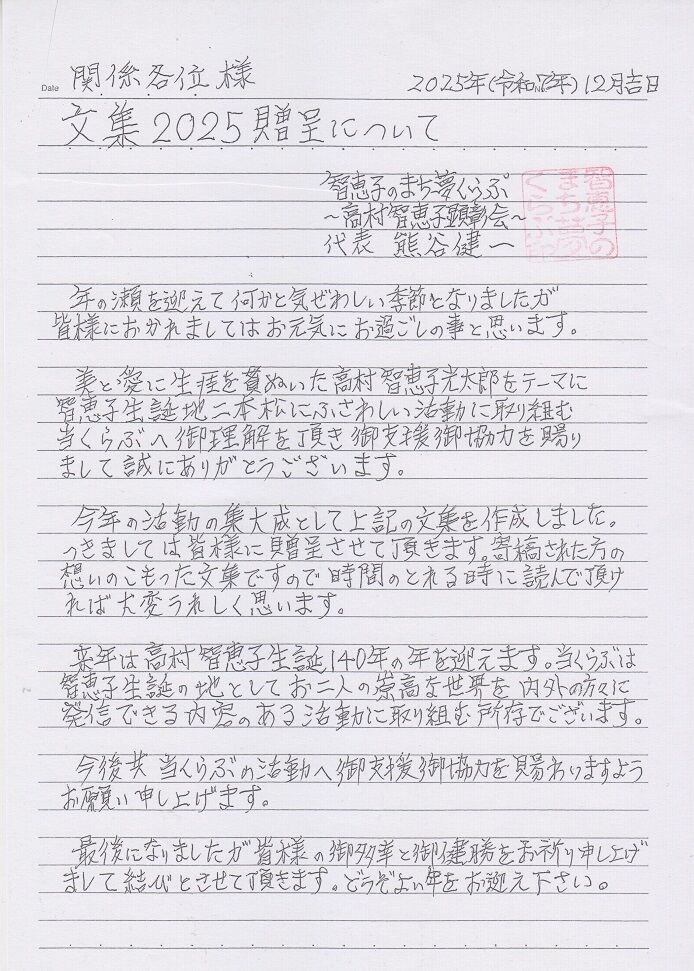 Date
関係各位様
2025年(令和7年)12月吉日
文集2025贈呈について
智恵子のまち夢くらぶ
～高村智恵子顕彰会～
代表 熊谷健一
智恵子の
まち夢
くらぶ印
年の瀬を迎えて何かと気ぜわしい季節となりましたが
皆様におかれましてはお元気にお過ごしの事と思います。
美と愛に生涯を貫ぬいた高村智恵子光太郎をテーマに
智恵子生誕地二本松にふさわしい活動に取り組む
当くらぶへ御理解を頂き御支援御協力を賜り
まして誠にありがとうございます。
今年の活動の集大成として上記の文集を作成しました。
つきましては皆様に贈呈させて頂きます。寄稿された方の
想いのこもった文集ですので時間のとれる時に読んで頂け
れば大変うれしく思います。
来年は高村智恵子生誕140年の年を迎えます。当くらぶは
智恵子生誕の地としてお二人の崇高な世界を内外の方々に
発信できる内容のある活動に取り組む所存でございます。
今後共当くらぶの活動へ御支援御協力を賜わりますよう
お願い申し上げます。
最後になりましたが皆様の御多幸と御健勝をお祈り申し上げ
まして結びとさせて頂きます。どうぞよい年をお迎え下さい。